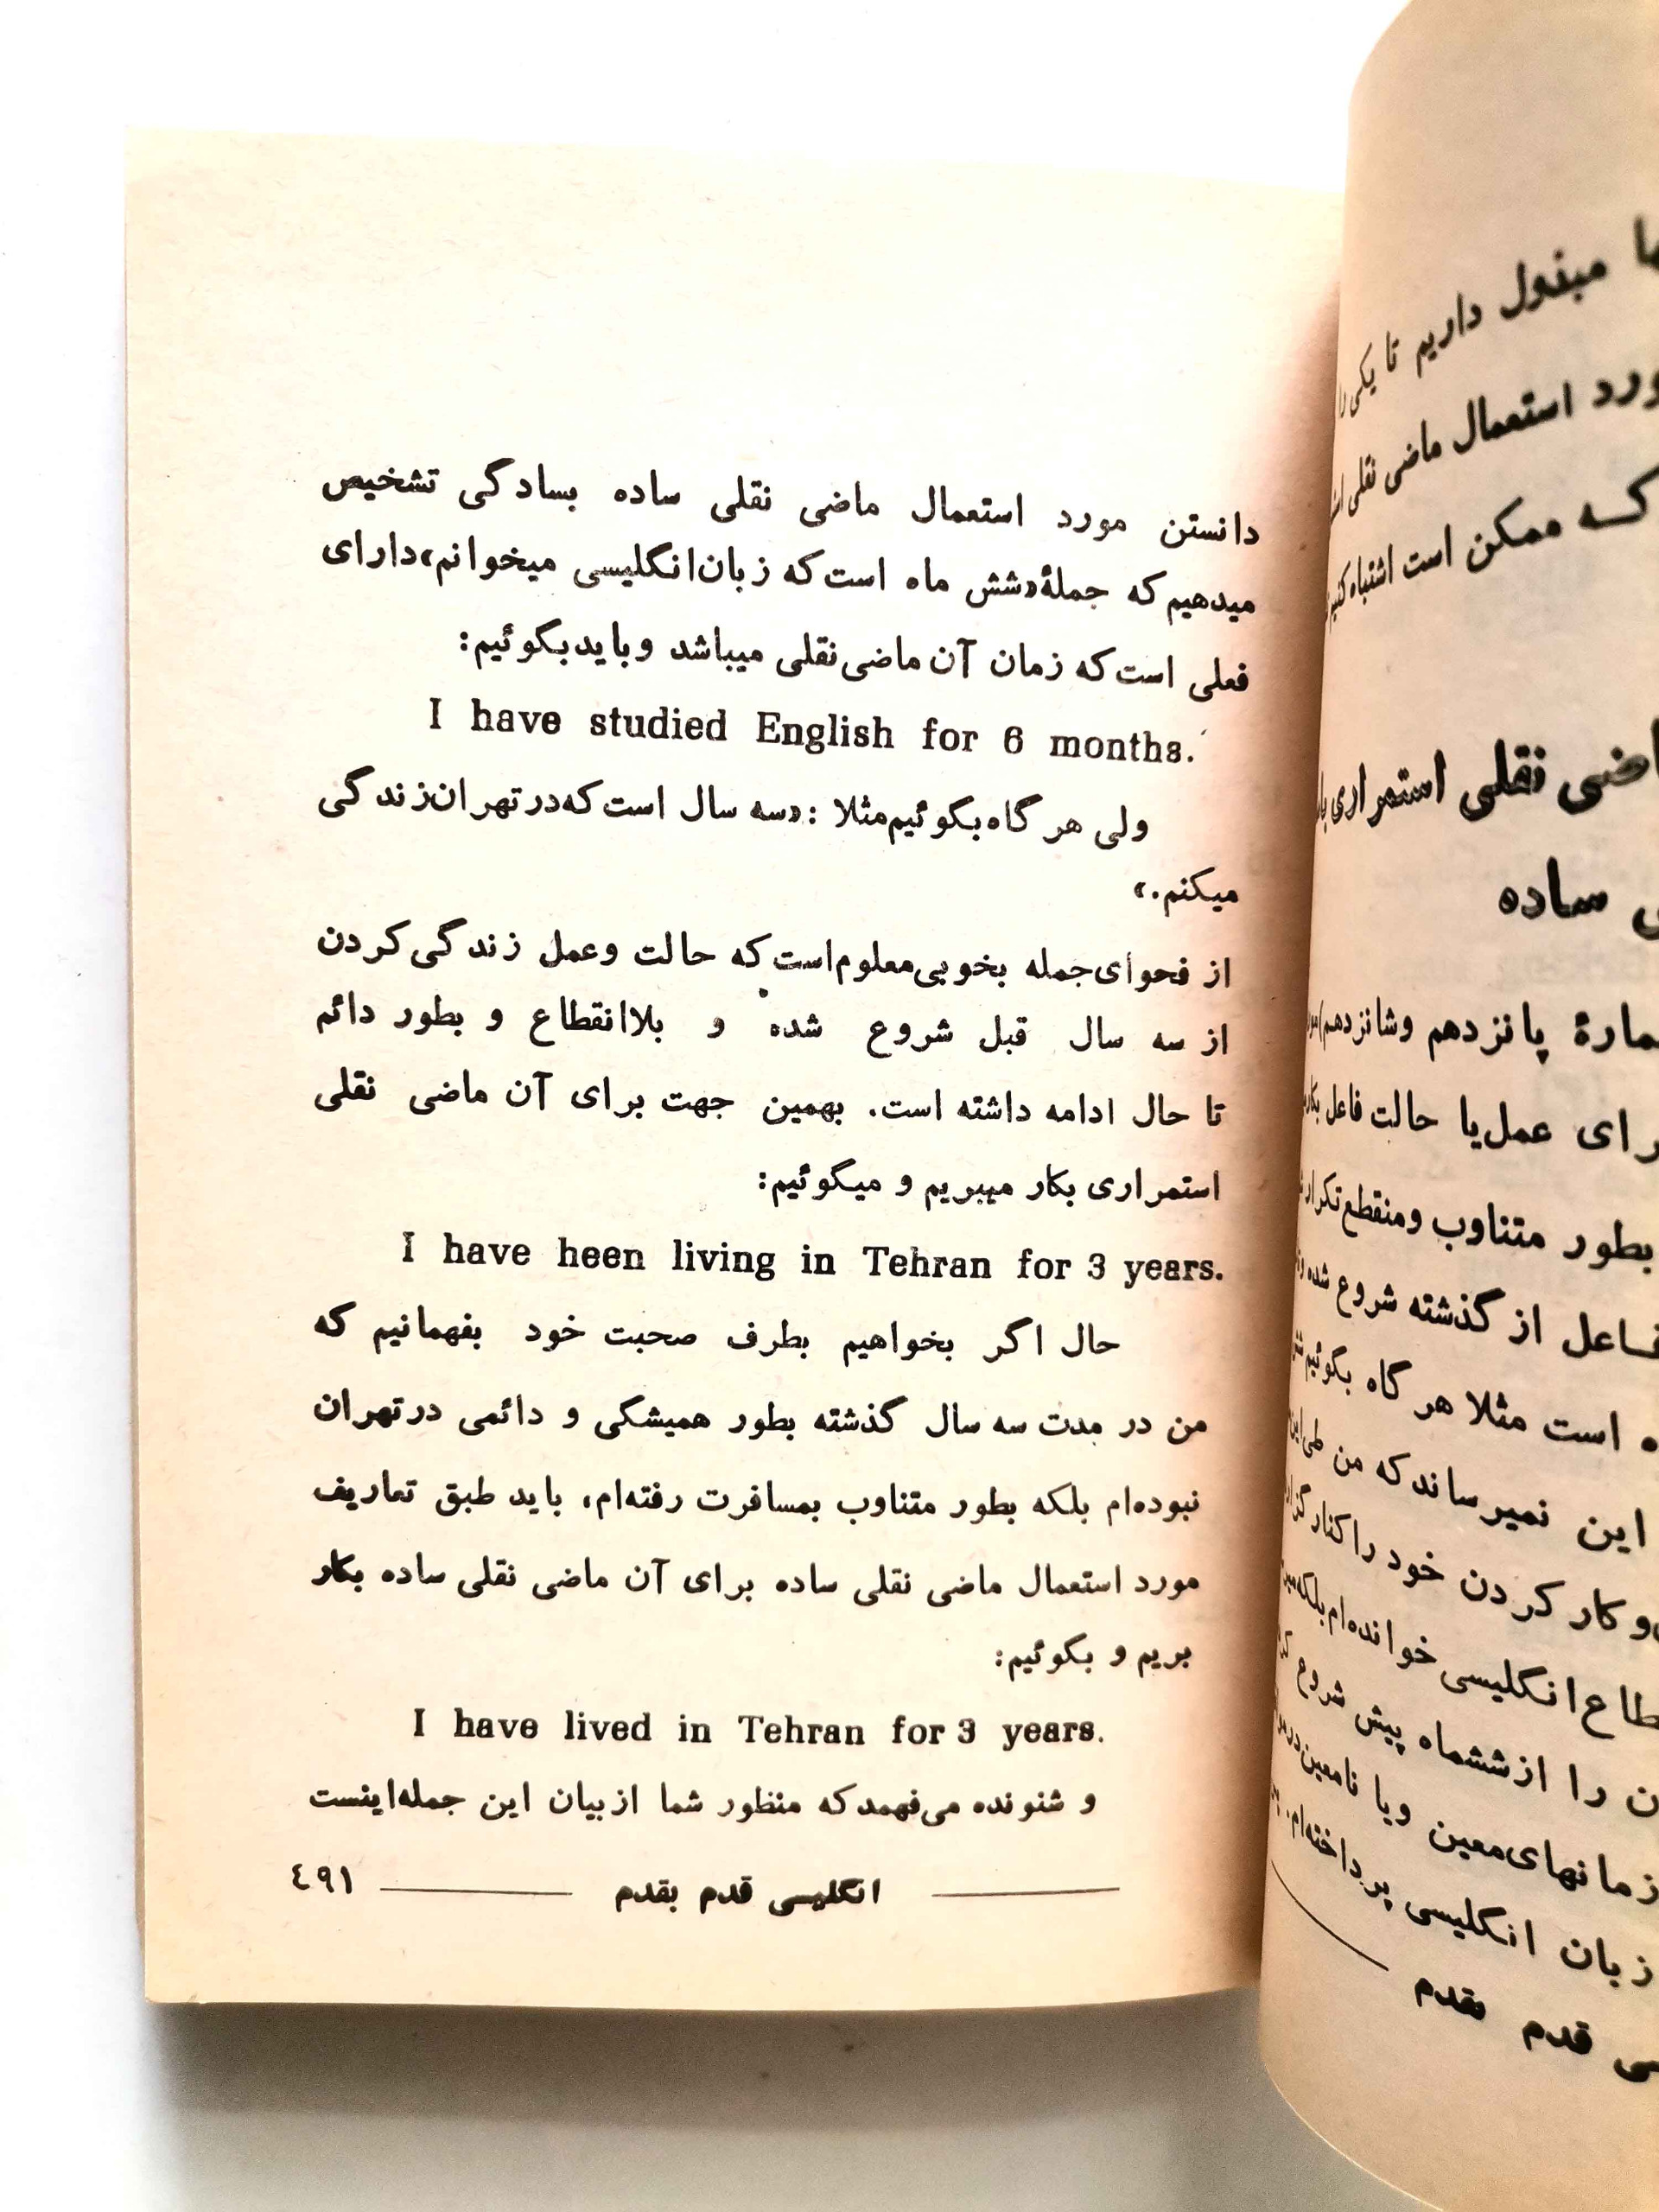 دانستن مورد استعمال ماضی نقلی ساده بسادگی تشخیص
میدهیم که جملهٔ «شش ماه است که زبان انگلیسی میخوانم» دارای
فعلی است که زمان آن ماضی نقلی میباشد و باید بگوئیم:
I have studied English for 6 months.
ولی هر گاه بگوئیم مثلا : «سه سال است که در تهران زندگی
میکنم.»
از فحوای جمله بخوبی معلوم است که حالت و عمل زندگی کردن
از سه سال قبل شروع شده و بلاانقطاع و بطور دائم
تا حال ادامه داشته است. بهمین جهت برای آن ماضی نقلی
استمراری بکار میبریم و میگوئیم:
I have heen living in Tehran for 3 years.
حال اگر بخواهیم بطرف صحبت خود بفهمانیم که
من در مدت سه سال گذشته بطور همیشگی و دائمی در تهران
نبوده‌ام بلکه بطور متناوب بمسافرت رفته‌ام، باید طبق تعاریف
مورد استعمال ماضی نقلی ساده برای آن ماضی نقلی ساده بکار
بریم و بگوئیم:
I have lived in Tehran for 3 years.
و شنونده می‌فهمد که منظور شما از بیان این جمله اینست
انگلیسی قدم بقدم ٤٩١
داریم تا یکی را
استعمال ماضی نقلی
که ممکن است اشتباه
نقلی استمراری
ساده
پانزدهم و شانزدهم)
عمل یا حالت فاعل
بطور متناوب و منقطع
از گذشته شروع شده
است مثلا هر گاه بگوئیم
این نمیرساند که من طی این
و کار کردن خود را کنار
انگلیسی خوانده‌ام بلکه
را از ششماه پیش شروع
زمانهای معین و یا نامعین
زبان انگلیسی پرداخته‌ام.
قدم بقدم